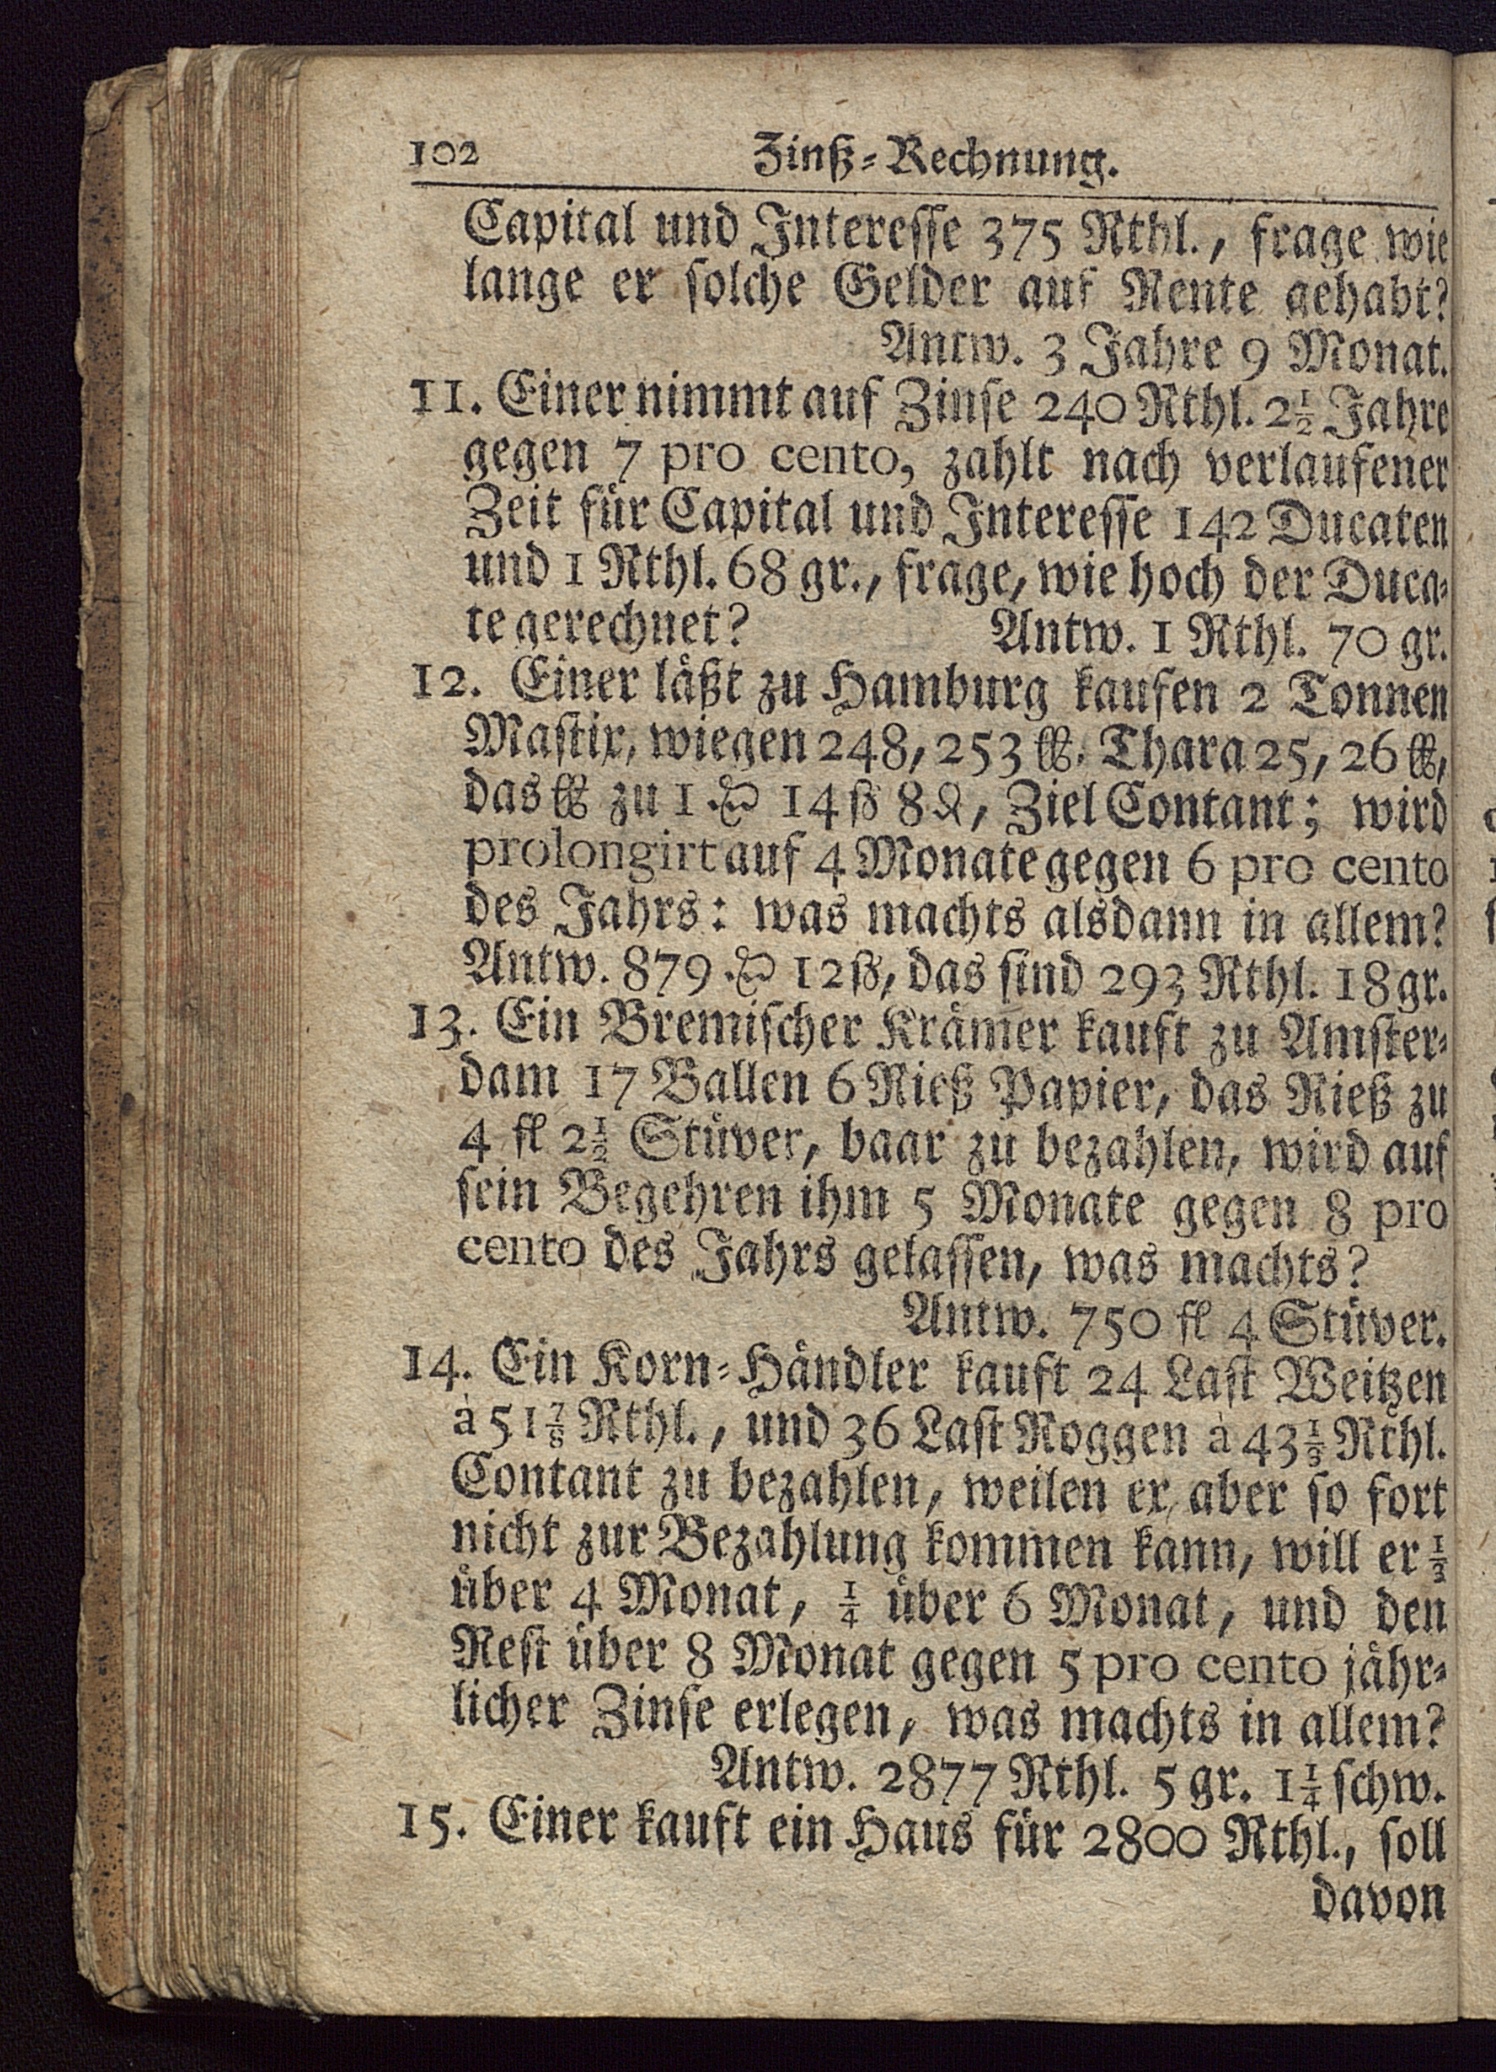 102 Zinß-Rechnung.
Capital und Interesse 375 Rthl., frage wie
lange er solche Gelder auf Rente gehabt?
Antw. 3 Jahre 9 Monat.
11. Einer nimmt auf Zinse 240 Rthl. 2½ Jahre
gegen 7 pro cento, zahlt nach verlaufener
Zeit für Capital und Interesse 142 Ducaten
und 1 Rthl. 68 gr., frage, wie hoch der Duca-
te gerechnet? Antw. 1 Rthl. 70 gr.
12. Einer läßt zu Hamburg kaufen 2 Tonnen
Mastix, wiegen 248, 253 ℔. Thara 25, 26 ℔,
das ℔ zu 1 14 ß 8 ₰, Ziel Contant; wird
prolongirt auf 4 Monate gegen 6 pro cento
des Jahrs: was machts alsdann in allem?
Antw. 879 12 ß, das sind 293 Rthl. 18 gr.
13. Ein Bremischer Krämer kauft zu Amster-
dam 17 Ballen 6 Rieß Papier, das Rieß zu
4 fl 2½ Stüver, baar zu bezahlen, wird auf
sein Begehren ihm 5 Monate gegen 8 pro
cento des Jahrs gelassen, was machts?
Antw. 750 fl 4 Stüver.
14. Ein Korn-Händler kauft 24 Last Weitzen
à 51⅞ Rthl., und 36 Last Roggen à 43⅓ Rthl.
Contant zu bezahlen, weilen er aber so fort
nicht zur Bezahlung kommen kann, will er ⅓
über 4 Monat, ¼ über 6 Monat, und den
Rest über 8 Monat gegen 5 pro cento jähr-
licher Zinse erlegen, was machts in allem?
Antw. 2877 Rthl. 5 gr. 1¼ schw.
15. Einer kauft ein Haus für 2800 Rthl., soll
davon